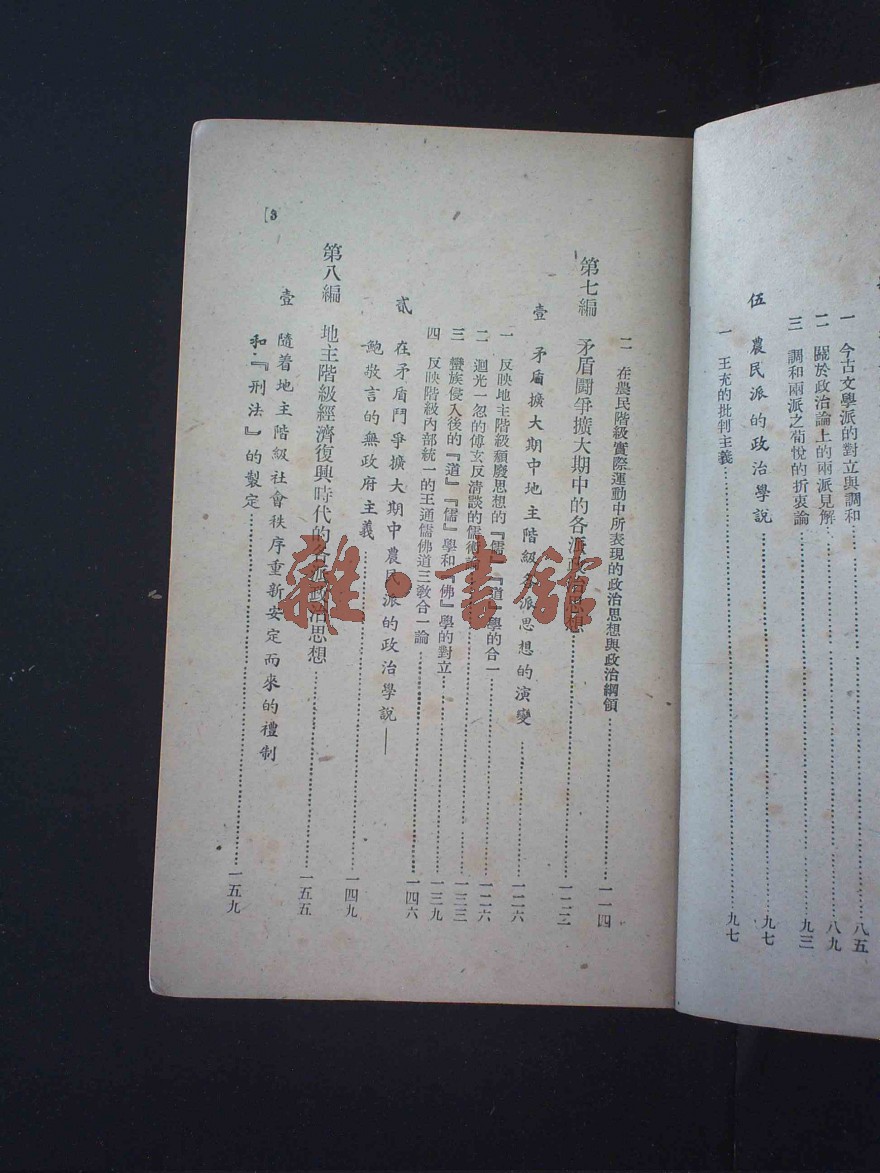 一 今古文學派的對立與調和………八五
二 關於政治論上的兩派見解………八九
三 調和兩派之荀悅的折衷論………九三
伍 農民派的政治學說………九七
一 王充的批判主義………九七
二 在農民階級實際運動中所表現的政治思想與政治綱領………一一四
第七編 矛盾鬪爭擴大期中的各派政治思想………一二二
壹 矛盾擴大期中地主階級各派思想的演變………一二六
一 反映地主階級頹廢思想的『儒』『道』學的合一………一二六
二 迴光一忽的傅玄反清談的儒術………一三三
三 蠻族侵入後的『道』『儒』學和『佛』學的對立………一三九
四 反映階級內部統一的王通儒佛道三教合一論………一四六
貳 在矛盾鬥爭擴大期中農民派的政治學說——
鮑敬言的無政府主義………一四九
第八編 地主階級經濟復興時代的各派政治思想………一五五
壹 隨着地主階級社會秩序重新安定而來的禮制
和『刑法』的製定………一五九
[3
雜·書館